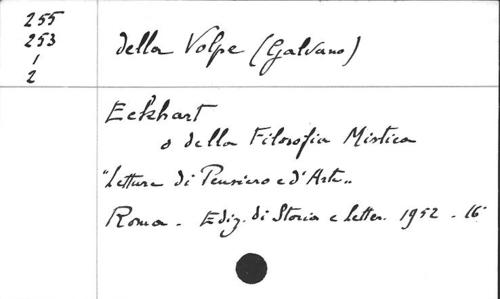 255
253
1
2
della Volpe (Galvano)
Eckhart
o della Filosofia Mistica
"Letture di Pensiero e d'Arte"
Roma - Ediz. di Storia e Letter. 1952 - 16°